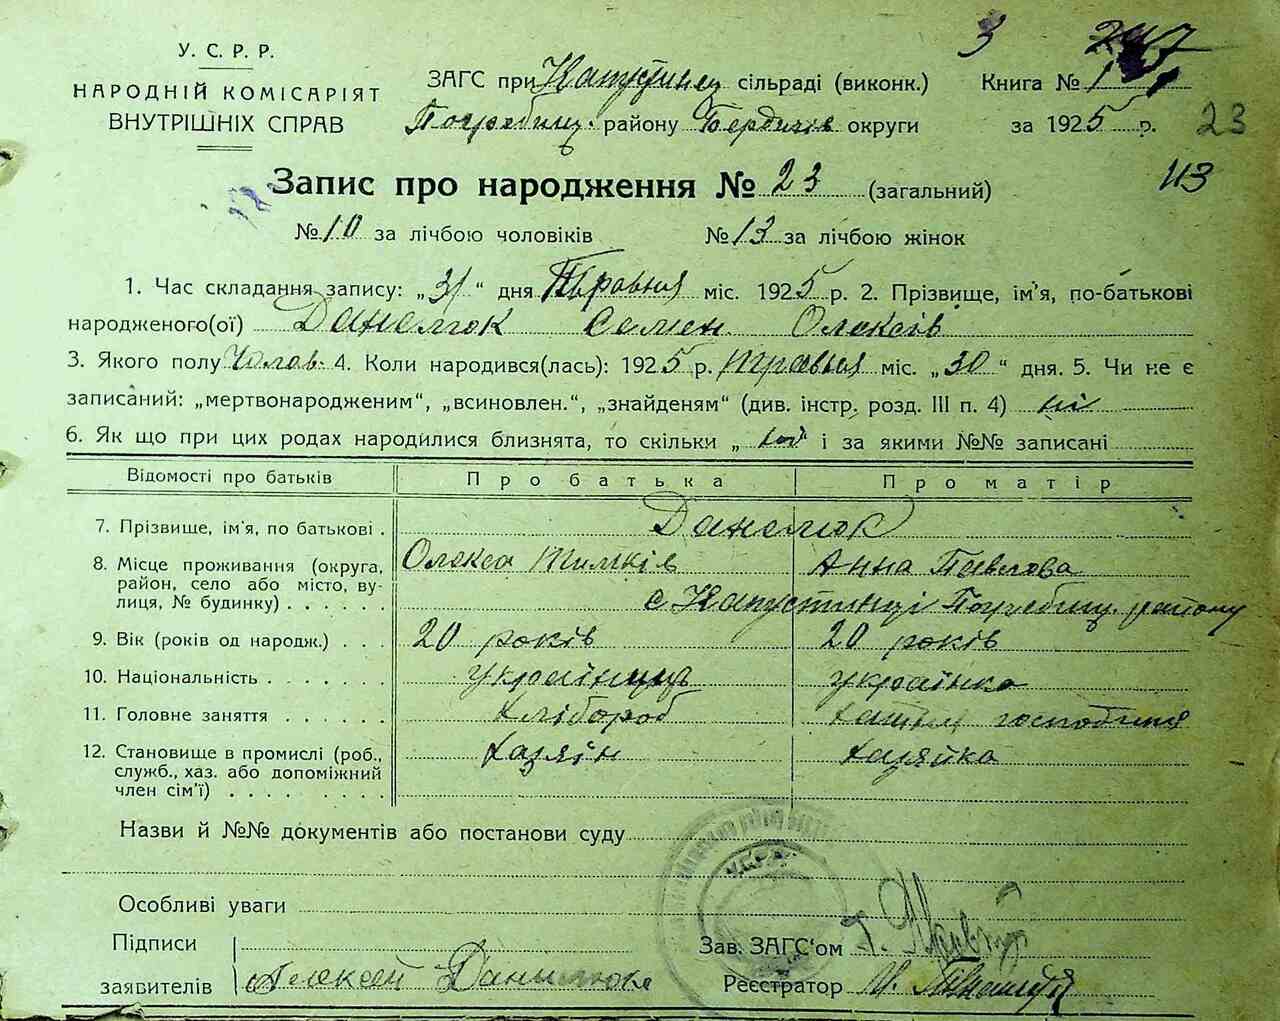 У. С. Р. Р.
НАРОДНІЙ КОМІСАРІЯТ
ВНУТРІШНІХ СПРАВ
ЗАГС при Капустинец сільраді (виконк.)
Погребищ. району Бердичів округи
3
Книга № 1
за 1925 р.
23
Запис про народження № 23 (загальний)
113
№ 10 за лічбою чоловіків № 13 за лічбою жінок
1. Час складання запису: „31“ дня Травня міс. 1925 р. 2. Прізвище, ім'я, по-батькові
народженого(ої) Данелюк Семен Олексів
3. Якого полу Чолов. 4. Коли народився(лась): 1925 р. травня міс. „30“ дня. 5. Чи не є
записаний: „мертвонародженим“, „всиновлен.“, „знайденям“ (див. інстр. розд. III п. 4) ні
6. Як що при цих родах народилися близнята, то скільки „ “ і за якими №№ записані
Відомості про батьків Про батька Про матір
7. Прізвище, ім'я, по батькові . Данелюк
8. Місце проживання (округа, Олекса Тимків Анна Павлова
район, село або місто, ву-
лиця, № будинку) . . . . . . с Капустинці Погребищ. району
9. Вік (років од народж.) . . . 20 років 20 років
10. Національність . . . . . . . українець українка
11. Головне заняття . . . . . . хлібороб господиня
12. Становище в промислі (роб., хазяін хазяйка
служб., хаз. або допоміжний
член сім'ї) . . . . . . . . .
Назви й №№ документів або постанови суду
У.С.Р.Р.
Особливі уваги
Підписи
заявителів Алексей Данилюк
Зав. ЗАГС'ом
Реєстратор